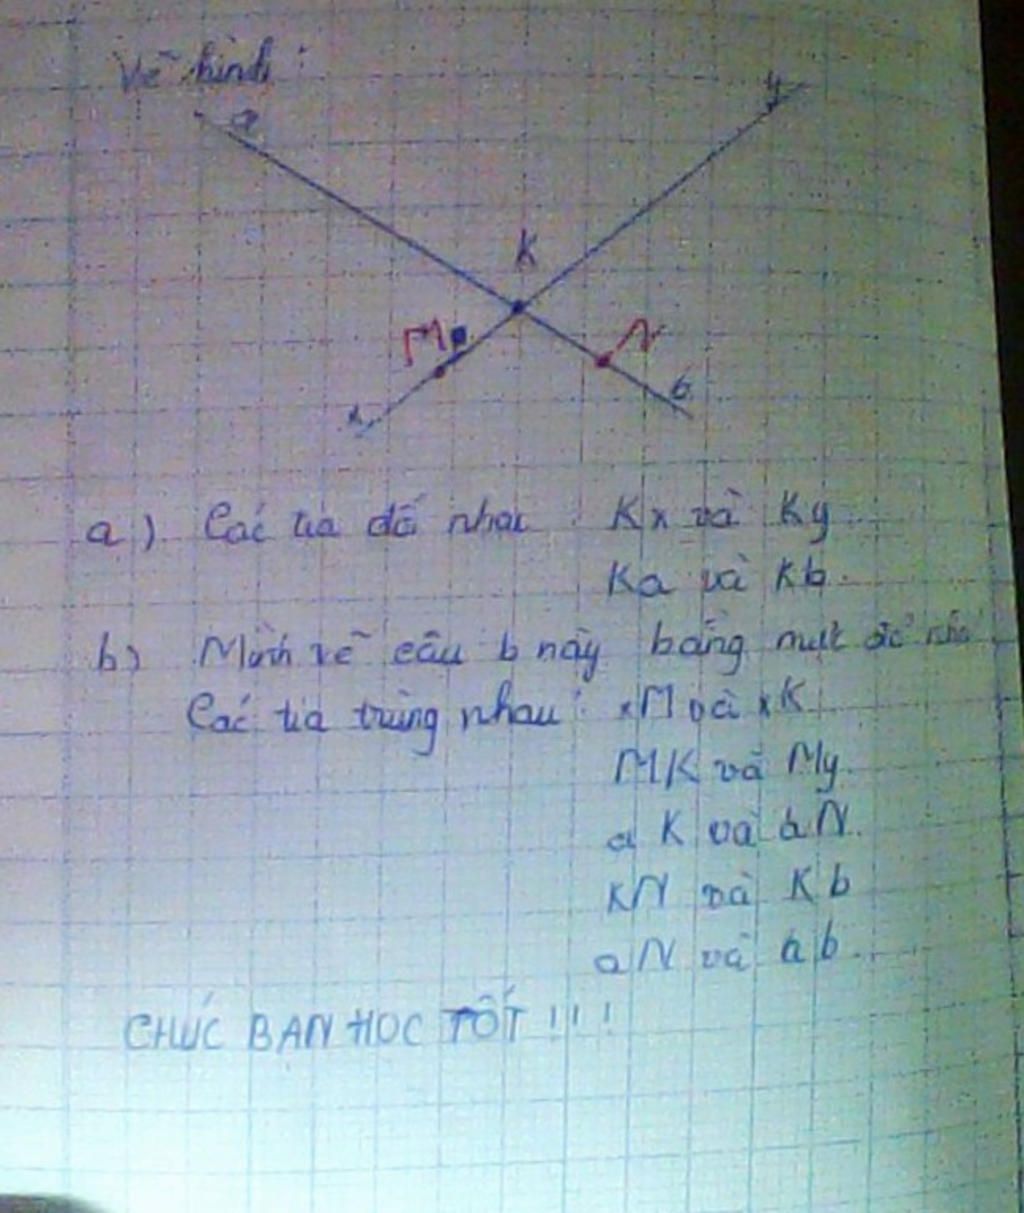 Vẽ hình:
a
y
K
M
N
x
b
a) Các tia đối nhau: Kx và Ky
Ka và Kb.
b) Mình vẽ câu b này bằng mực đỏ nhé
Các tia trùng nhau: xM và xK
MK và My
aK và aN.
KN và Kb
aN và ab.
CHÚC BAN HOC TỐT!!!